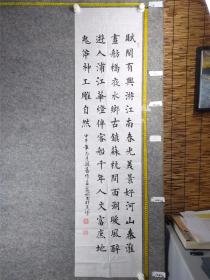 賦閒有興游江南春光美景好河山秦淮
畫舫夜水鄉古鎮蘇杭間西湖暖風醉
遊人浦江華燈伴客船千年人文富庶地
鬼斧神工雕自然